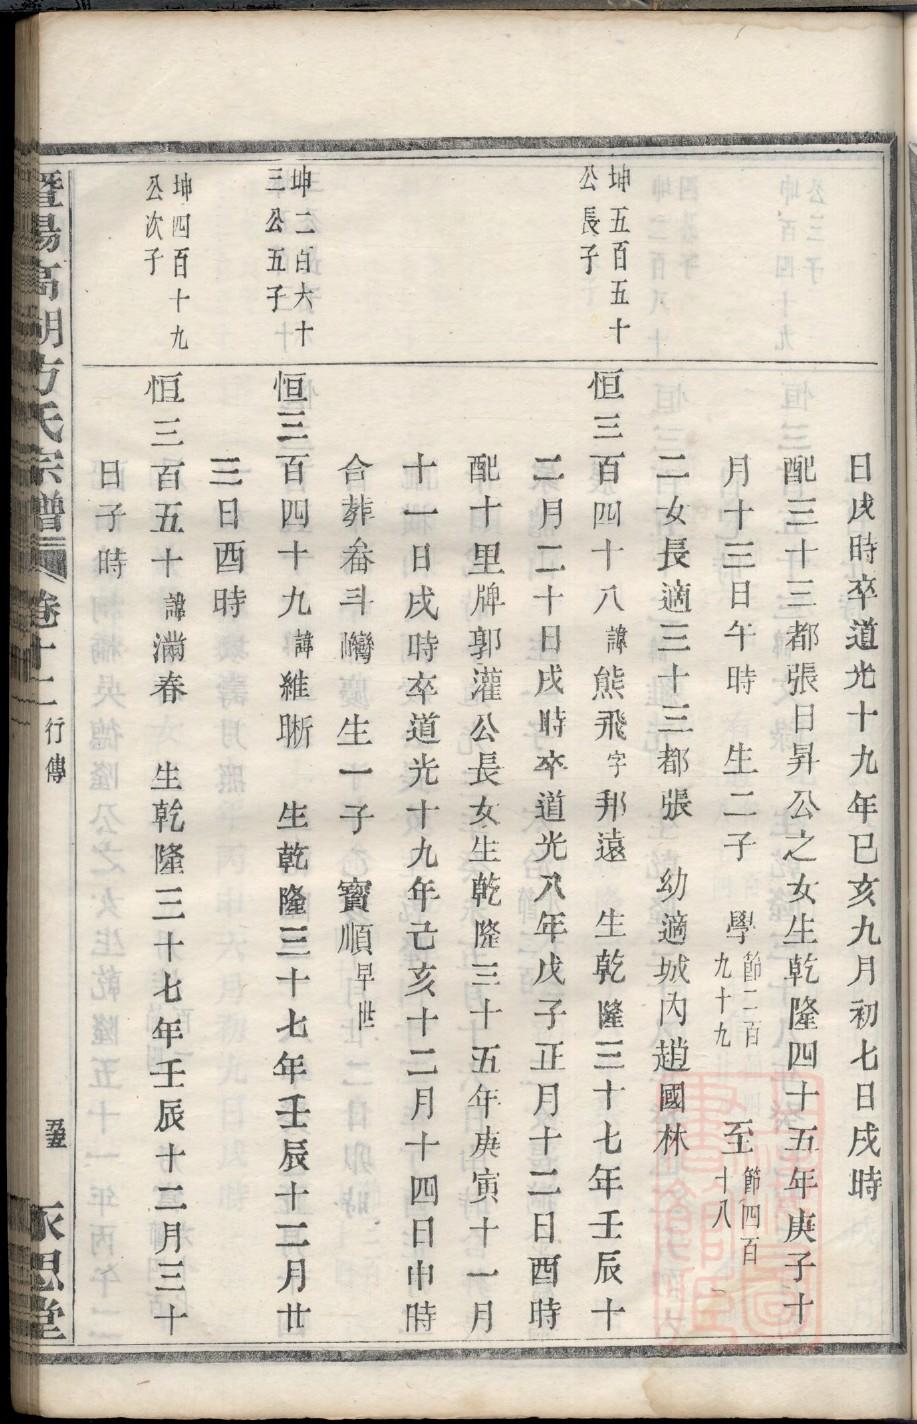 日戌時卒道光十九年巳亥九月初七日戌時
配三十三都張日昇公之女生乾隆四十五年庚子十
月十三日午時 生二子 學節二百九十九 至節四百十八
二女長適三十三都張 幼適城内趙國林
坤五百五十公長子
恒三百四十八諱熊飛字邦遠 生乾隆三十七年壬辰十
二月二十日戌時卒道光八年戊子正月十二日酉時
配十里牌郭灌公長女生乾隆三十五年庚寅十一月
十一日戌時卒道光十九年己亥十二月十四日申時
合葬畚斗灣 生一子 寶順早世
坤二百六十三公五子
恒三百四十九諱維晣 生乾隆三十七年壬辰十二月廿
三日酉時
坤四百十九公次子
恒三百五十諱滿春 生乾隆三十七年壬辰十二月三十
日子時
暨陽高湖方氏宗譜 卷十二 行傳 永思堂